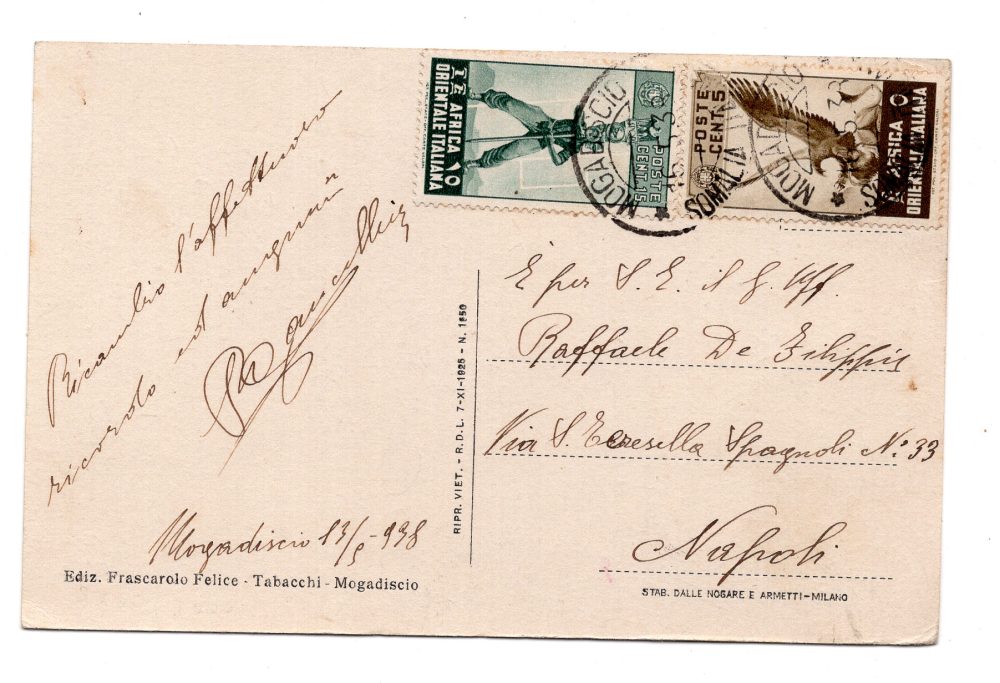 Ricambio l'affettuoso
ricordo ed auguri
Mogadiscio 13/5-938
Ediz. Frascarolo Felice - Tabacchi - Mogadiscio
RIPR. VIET. - R.D.L. 7-XI-1925 - N. 1950
AFRICA
ORIENTALE ITALIANA
POSTE
CENT. 15
MOGADISCIO
SOMALIA ITAL
POSTE
CENT 5
MOGADISCIO
AFRICA
ORIENTALE ITALIANA
È per S. E. il G. Uff.
Raffaele De Filippis
Via S. Teresella Spagnoli N.° 33
Napoli
STAB. DALLE NOGARE E ARMETTI-MILANO